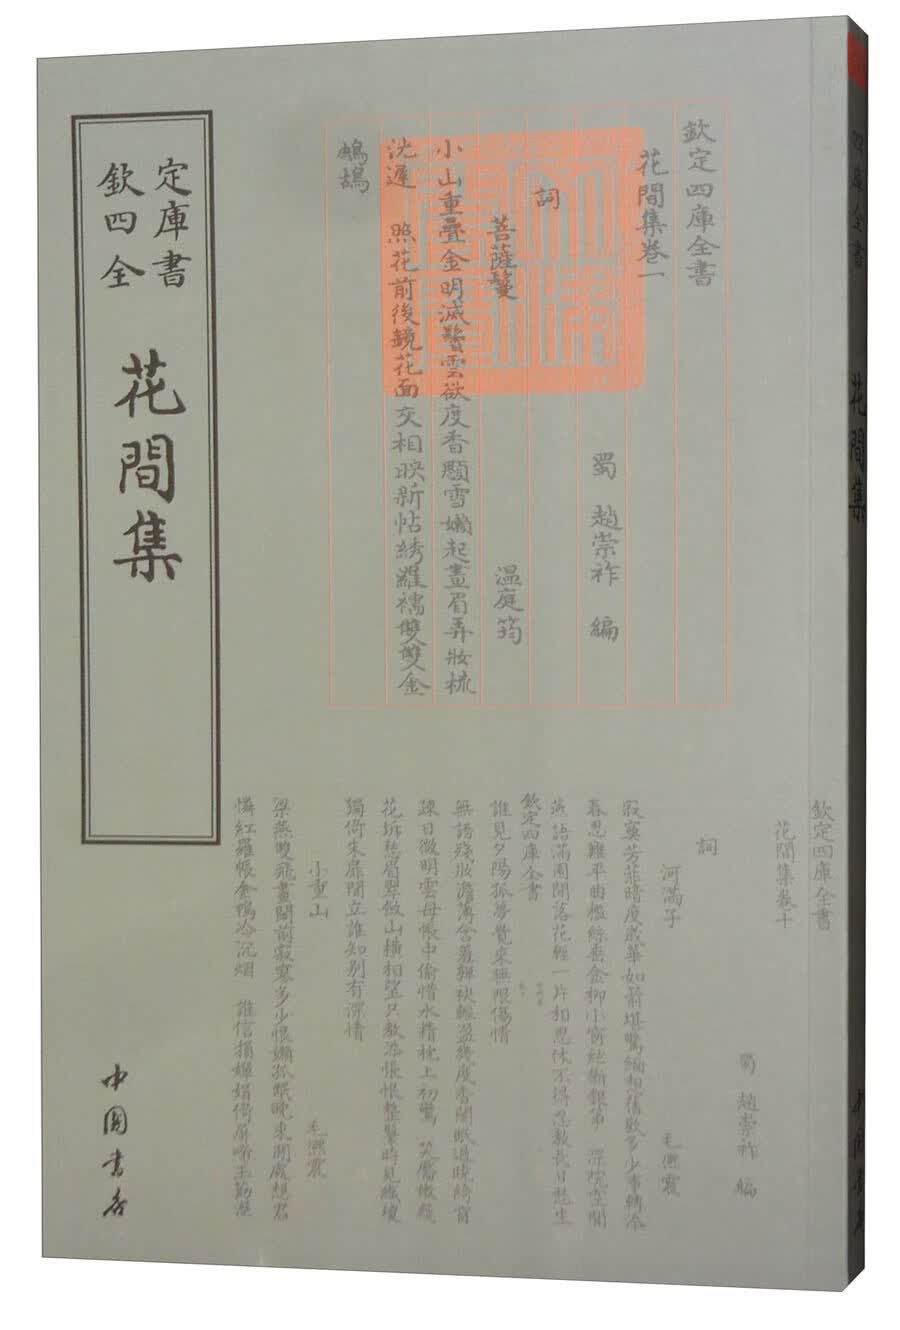 欽定
四庫
全書
花間集
中國書店
欽定四庫全書
花間集卷一
蜀 趙崇祚 編
詞
菩薩鬘 温庭筠
小山重疊金明滅鬢雲欲度香顋雪嬾起畫眉弄妝梳
洗遲 照花前後鏡花面交相映新帖綉羅襦雙雙金
鷓鴣
欽定四庫全書
花間集卷十
蜀 趙崇祚 編
詞
河滿子 毛熙震
寂寞芳菲暗度歲華如箭堪驚緬想舊歡多少事轉添
春思難平曲檻絲垂金柳小窗絃斷銀箏 深院空聞
燕語滿園閒落花輕一片相思休不得忍教長日愁生
欽定四庫全書
誰見夕陽孤夢覺來無限傷情
無語殘妝澹薄含羞嚲袂輕盈幾度香閨眠過曉綺窗
疎日微明雲母帳中偷惜水精枕上初驚 笑靨嫩疑
花坼愁眉翠斂山橫相望只教添悵恨整鬟時見纖瓊
獨倚朱扉閒立誰知別有深情
小重山 毛熙震
梁燕雙飛畫閣前寂寥多少恨嬾孤眠曉來閒處想君
憐紅羅帳金鴨冷沉烟 誰信損嬋娟倚屏啼玉筯濕
四庫全書
花間集
中國書店